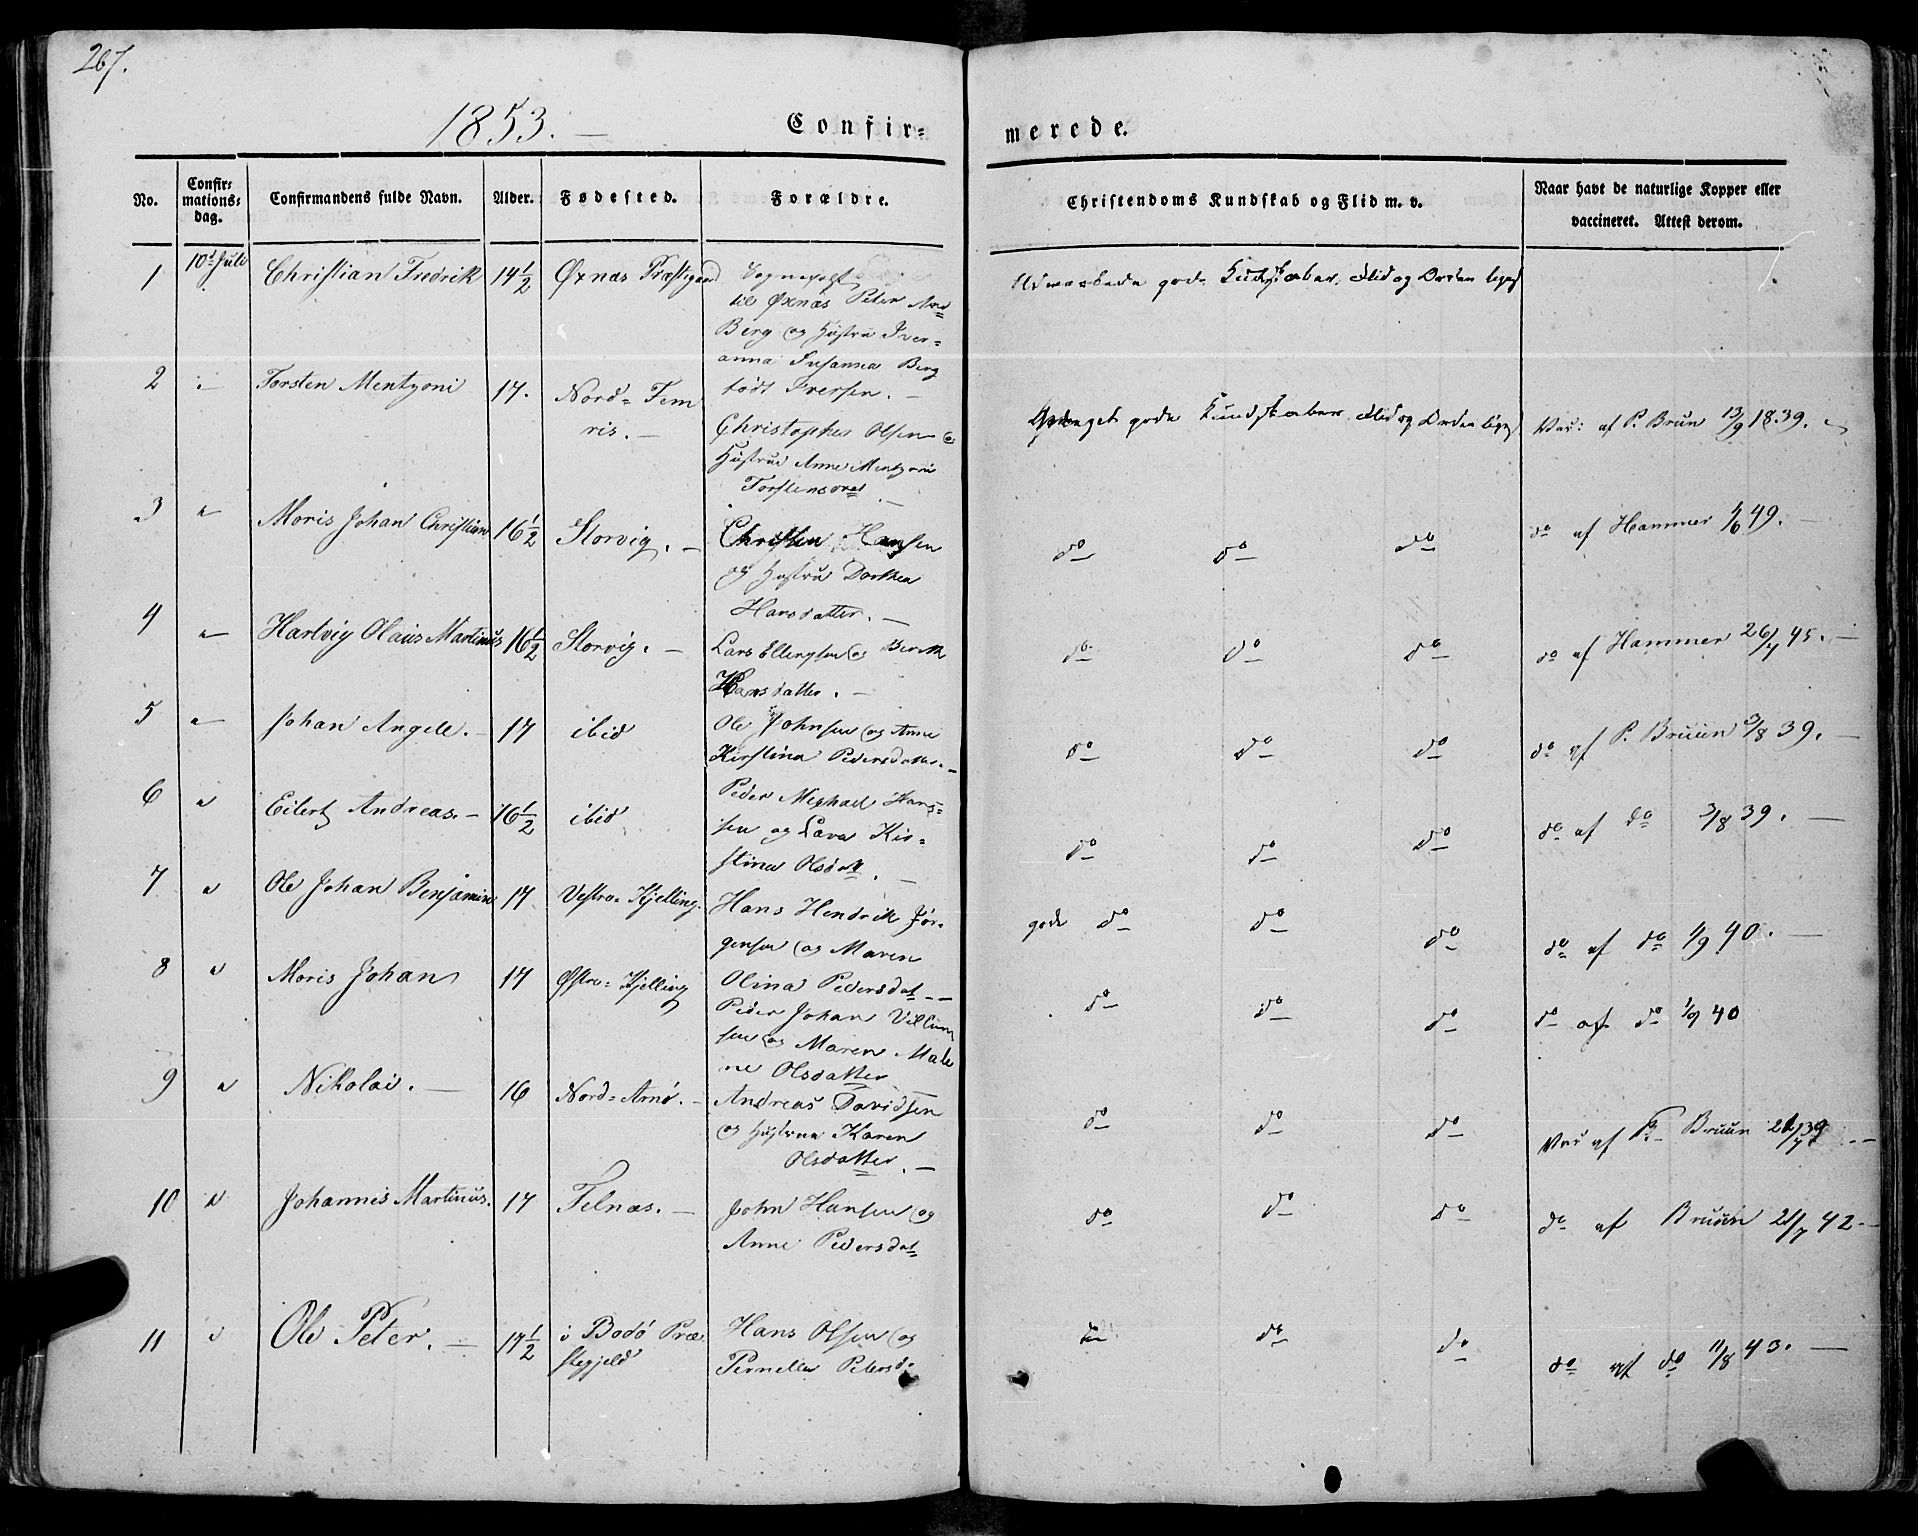 267.
1853. — Confir-
merede.
No. Confir-mations-dag. Confirmandens fulde Navn. Alder. Fødested. Forældre. Christendoms Kundskab og Flid m. v. Naar havt de naturlige Kopper eller vaccineret. Attest derom.
1 10d Juli Christian Fredrik 14½ Øxnæs Præstegaard Sognepræst
til Øxnæs Peter
Berg og Hustru Iver-
anna Susanna Berg
født Iversen. —
Udmærkede gode Kundskaber, Flid og Orden
2 Torsten Mentzoni 17. Nord-Fem
ris. —
Christopher Olsen og
Hustrue Anne Mentzoni
Torstensdat
gode Kundskaber, Flid og Orden Vac: af P. Brun 13/9 1839.
3 " Moris Johan Christian 16½ Storvig. — Christen Hansen
og Hustru Dorthea
Hansdatter. —
do do do do af Hammer 49. —
4 " Hartvig Olaus Martinus 16½ Storvig. — Lars Ellingsen og Berit
Hansdatter. —
do do do do af Hammer 26/4 45. —
5 " Johan Angele. — 17 ibid Ole Johnsen og Anne
Kirstina Pedersdatter. —
do do do do af P. Bruun 3/8 39. —
6 " Eilert Andreas. — 16½ ibid Peder Michael Hans-
sen og Lava Kir-
stina Olsdatt. —
do do do do af do 3/8 39. —
7 " Ole Johan Benjamin 17 Vestre-Kjelling. Hans Hendrik Jør-
gensen og Maren
Olina Pedersdat —
gode do do do do af do 1/9 40. —
8 " Moris Johan 17 Østre-Kjelling Peder Johan Villum
sen og Maren Male
ne Olsdatter
do do do do af do 1/9 40
9 " Nikolai. — 16 Nord-Arnø. — Andreas Davidsen
og Hustrue Karen
Olsdatter. —
do do do Vac af P. Bruun 39 —
10 " Johannis Martinus. 17 Felnæs. — John Hansen og
Anne Pedersdat
do do do do af Bruun 21/7 42 —
11 " Ole Peter. — 17½ i Bodø Præ
stegjeld
Hans Olsen og
Pernelle Petersd
do do do af do 11/8 43. —